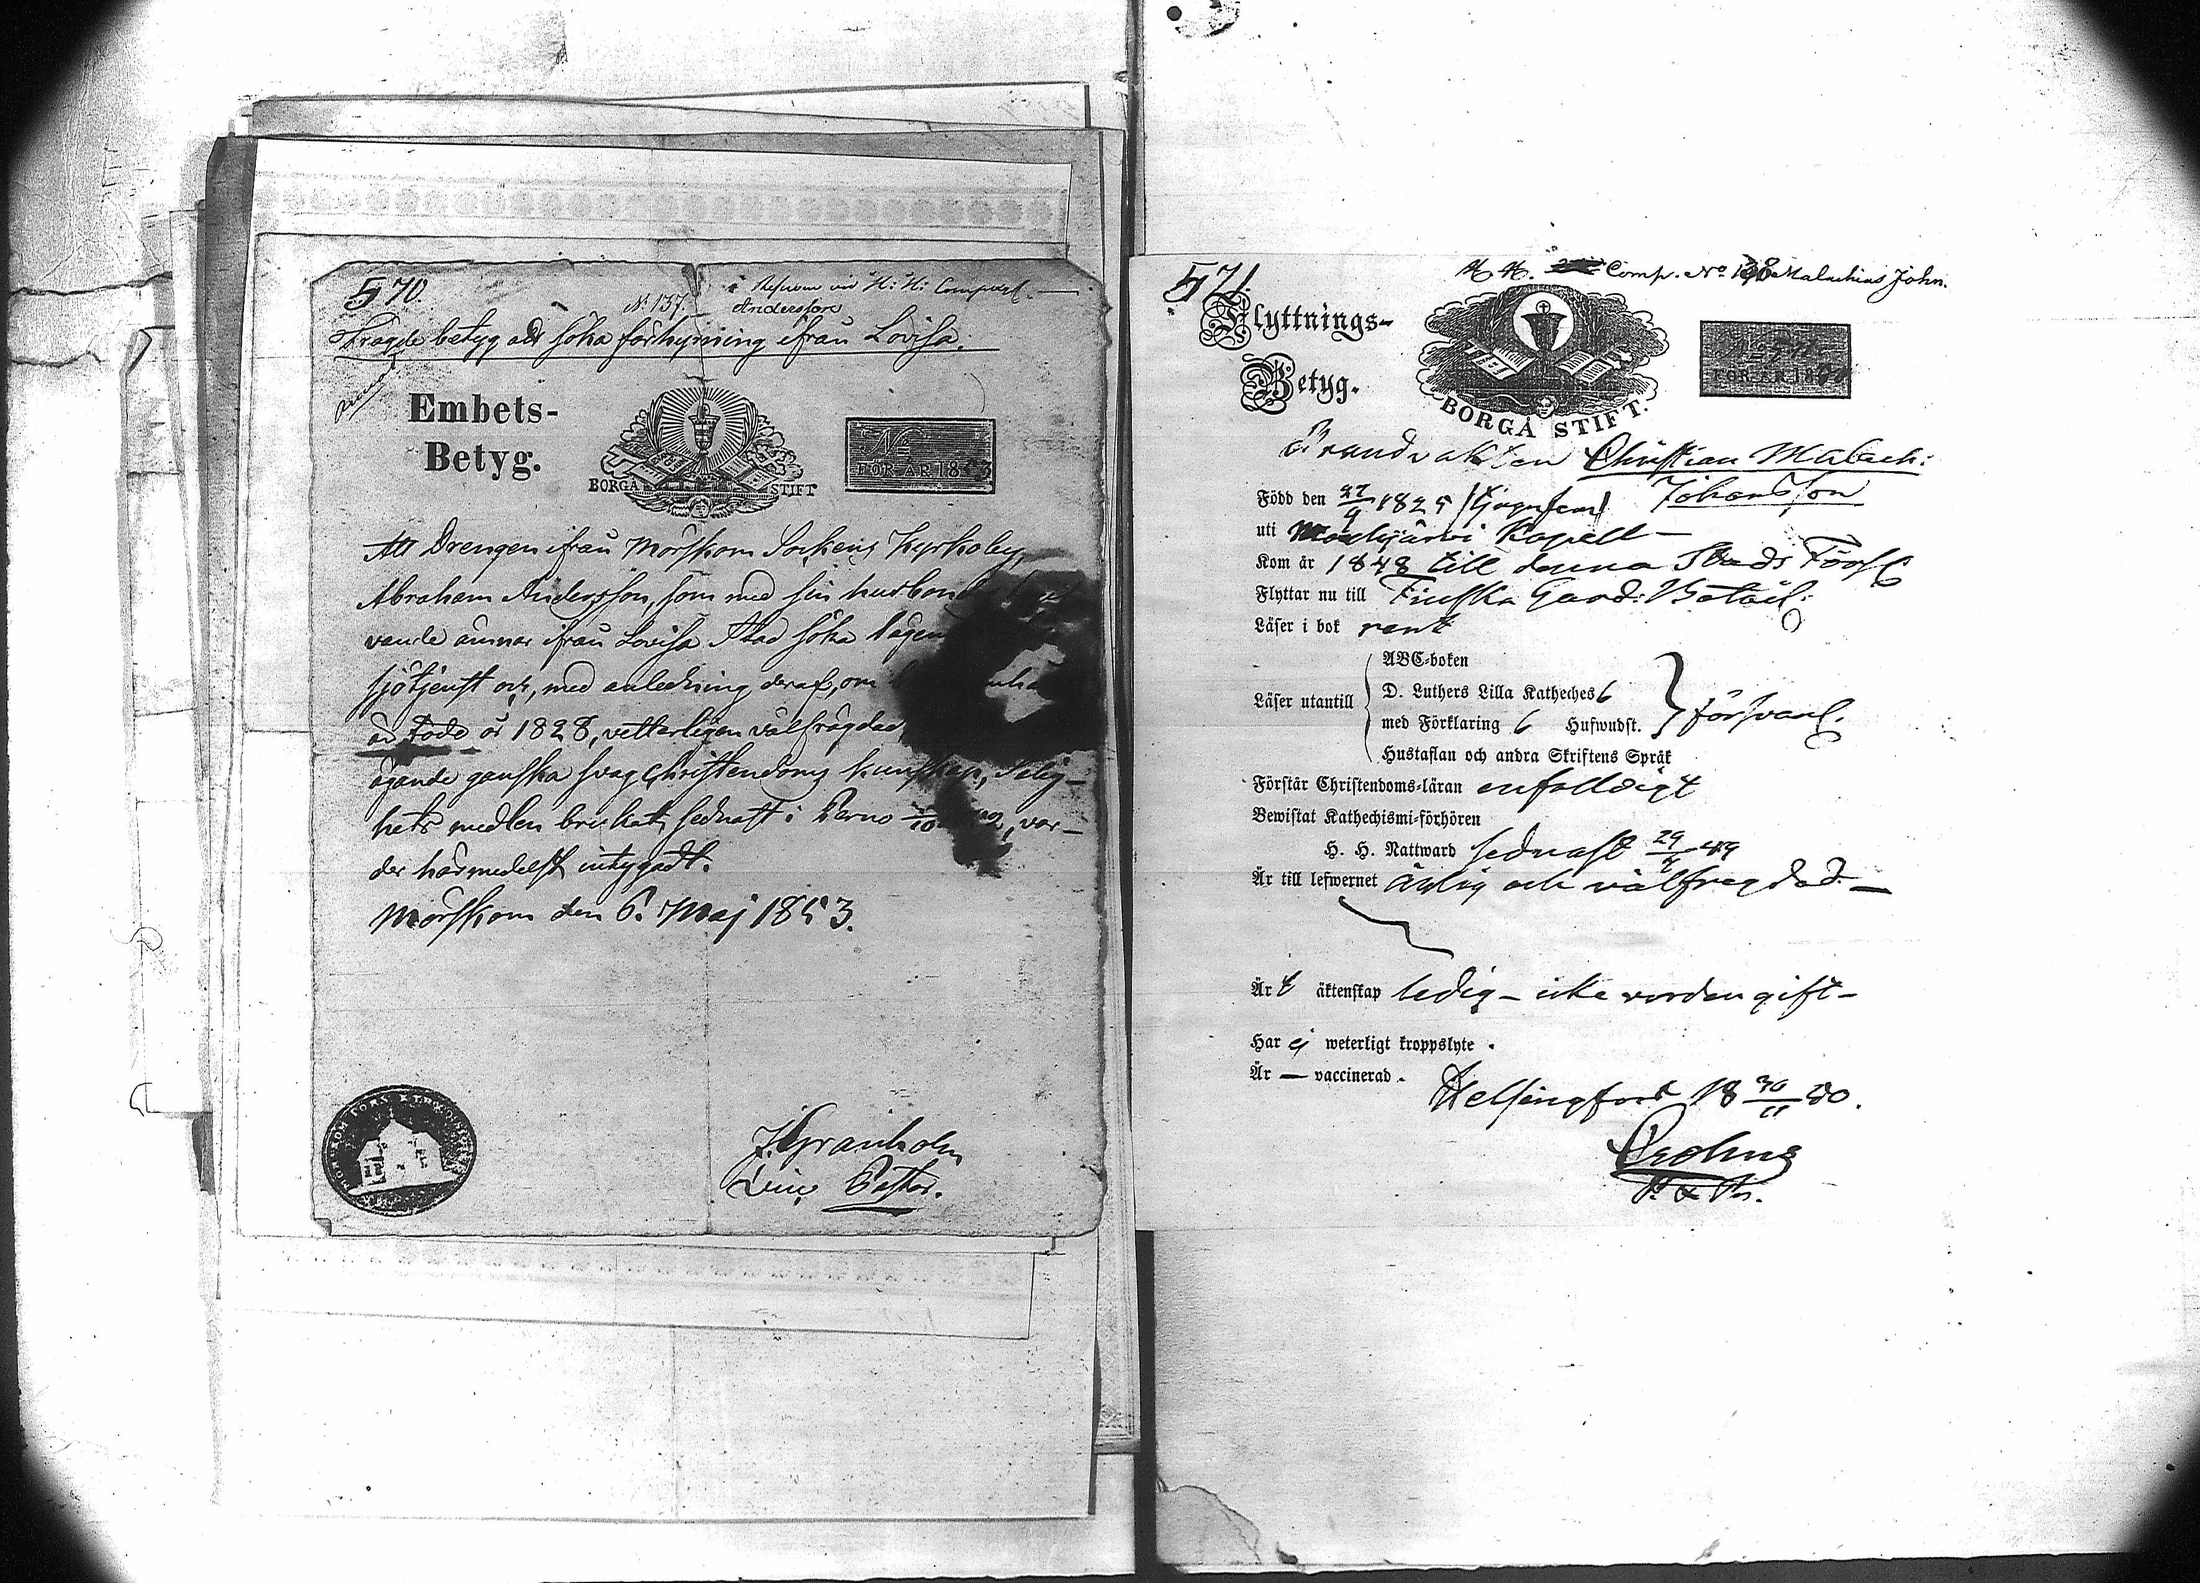 570.
N. 137.
Andersson
betyg att söka förhyrning ifrån Lovisa.
Embets-
Betyg.
BORGÅ STIFT
No
FÖR ÅR 1853
Att Drengen ifrån Mörskom Sockens Kyrkoby,
Abraham Andersson, som med sin husbon
vande ämnar ifrån Lovisa Stad söka lägen
sjötjenst och, med anledning deraf, om
är född år 1828, vetterligen välfrägdad
ägande ganska svag Christendoms kunskap, Salig-
hets medlen brukat, sednast i Perno var-
der härmedelst intygadt.
Mörskom den 6. Maj 1853.
J. Granholm
Vice Pastor.
571.
Comp. No 138 Malachias John.
Flyttnings-
Betyg.
BORGÅ STIFT.
FÖR ÅR 18
Brandvakten Christian Malach:
Johansson
Född den 27/9 1825
uti Kapell
Kom år 1848 till denna Stads Förs
Flyttar nu till Finska Gard: Batail:
Läser i bok rent
Läser utantill
ABC-boken
D. Luthers Lilla Katheches 6
med Förklaring 6 Hufwudst.
Hustaflan och andra Skriftens Språk
försvarl.
Förstår Christendoms-läran enfaldigt
Bewistat Kathechismi-förhören
H. H. Nattward sednast 29/4 49
Är till lefwernet ärlig och välfregdad.
Är t äktenskap ledig - icke vorden gift -
Har ej weterligt kroppslyte.
Är — vaccinerad.
Helsingfors 18 30/11 50.